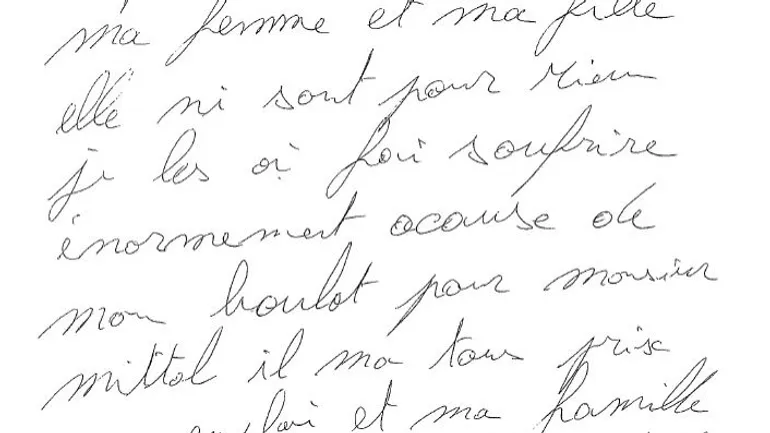 ma femme et ma fille
elle ni sont pour rien
je les ai fai soufrire
énormement acause de
mon boulot pour monsieur
mittal il ma tous prix
et ma famille